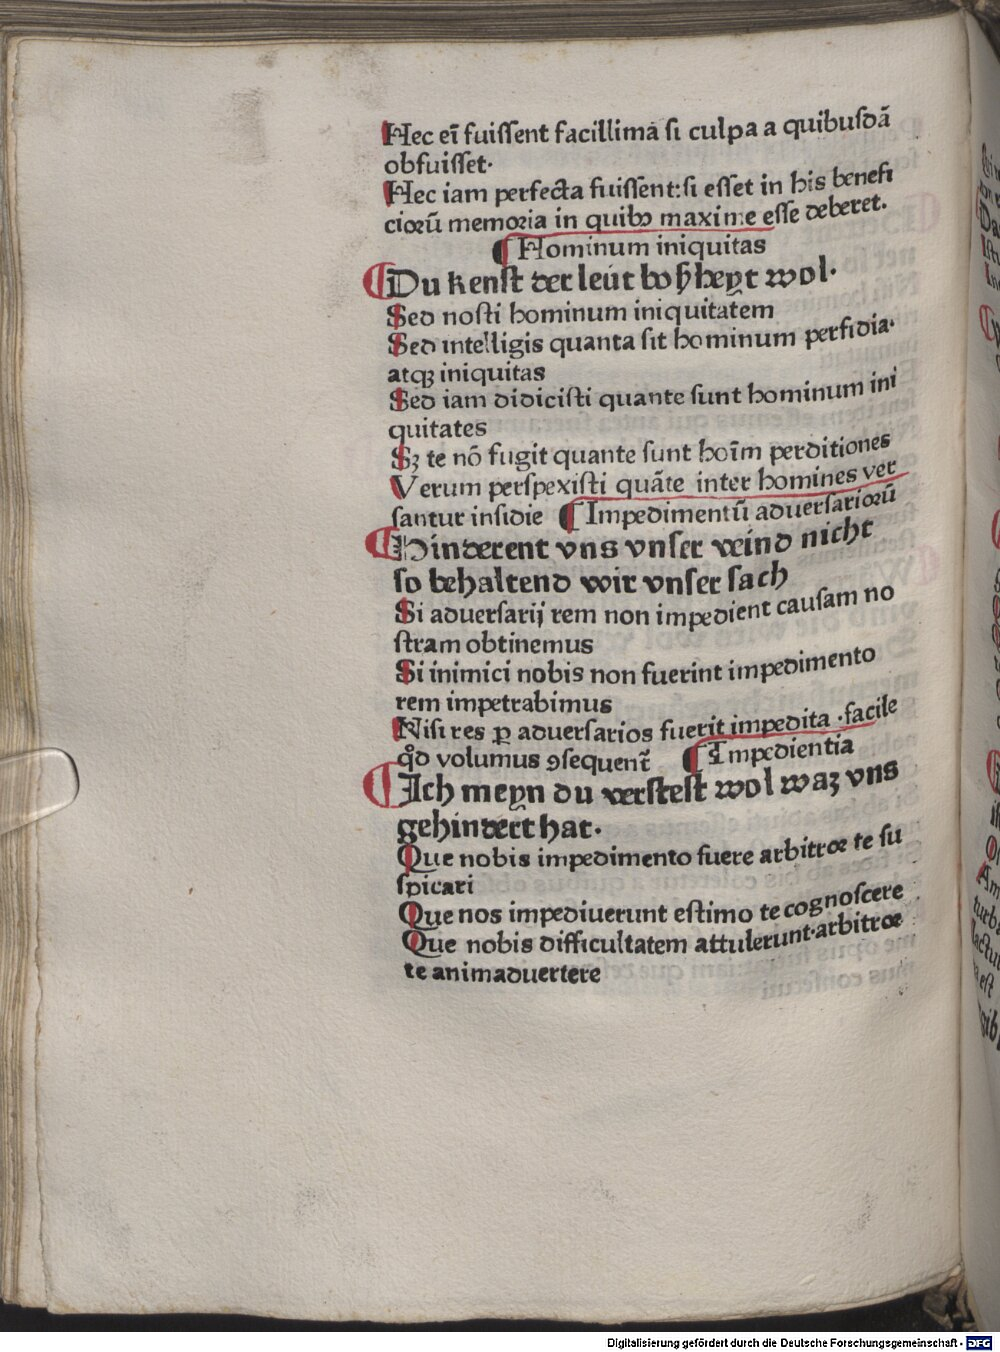 Hec eī fuiſſent facillima ſi culpa a quibuſdā
obfuiſſet·
Hec iam perfecta fuiſſent:ſi eſſet in his benefi
ciorū memoria in quibꝰ maxime eſſe deberet.
¶ Hominum iniquitas
¶ Du kenſt der leüt boſzheyt wol·
Sed noſti hominum iniquitatem
Sed intelligis quanta ſit hominum perfidia·
atqꝫ iniquitas
Sed iam didiciſti quante ſunt hominum ini
quitates
Sꝫ te nō fugit quante ſunt hoīm perditiones
Verum perſpexiſti quāte inter homines ver
ſantur inſidie ¶ Impedimentū aduerſariorū
¶ Hinderent vns vnſer veind nicht
ſo behaltend wir vnſer ſach
Si aduerſarij rem non impedient cauſam no
ſtram obtinemus
Si inimici nobis non fuerint impedimento
rem impetrabimus
Niſi res ꝑ aduerſarios fuerit impedita ·facile
qd̓ volumus ꝯſequent̄ ¶ Impedientia
¶ Ich meyn du verſteſt wol waʒ vns
gehindert hat·
Que nobis impedimento fuere arbitroꝛ te ſu
ſpicari
Que nos impediuerunt eſtimo te cognoſcere
Que nobis difficultatem attulerunt·arbitroꝛ
te animaduertere
Digitalisierung gefördert durch die Deutsche Forschungsgemeinschaft - DFG